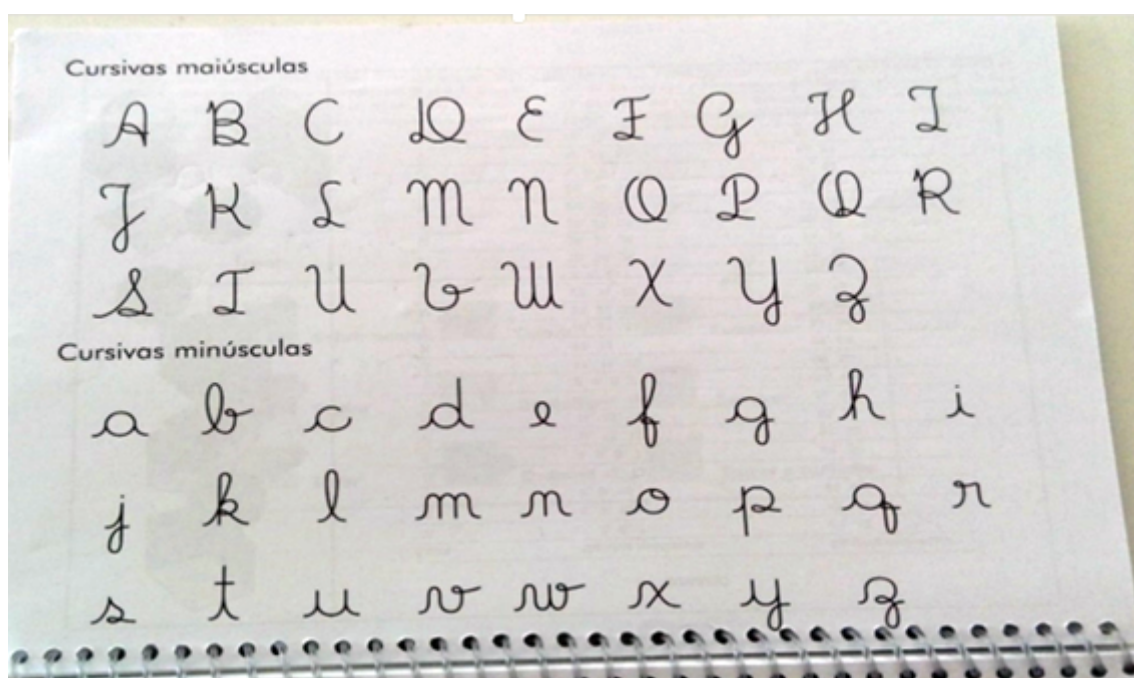 Cursivas maiúsculas
A B C D E F G H I
J K L M N O P Q R
S T U V W X Y Z
Cursivas minúsculas
a b c d e f g h i
j k l m n o p q r
s t u v w x y z